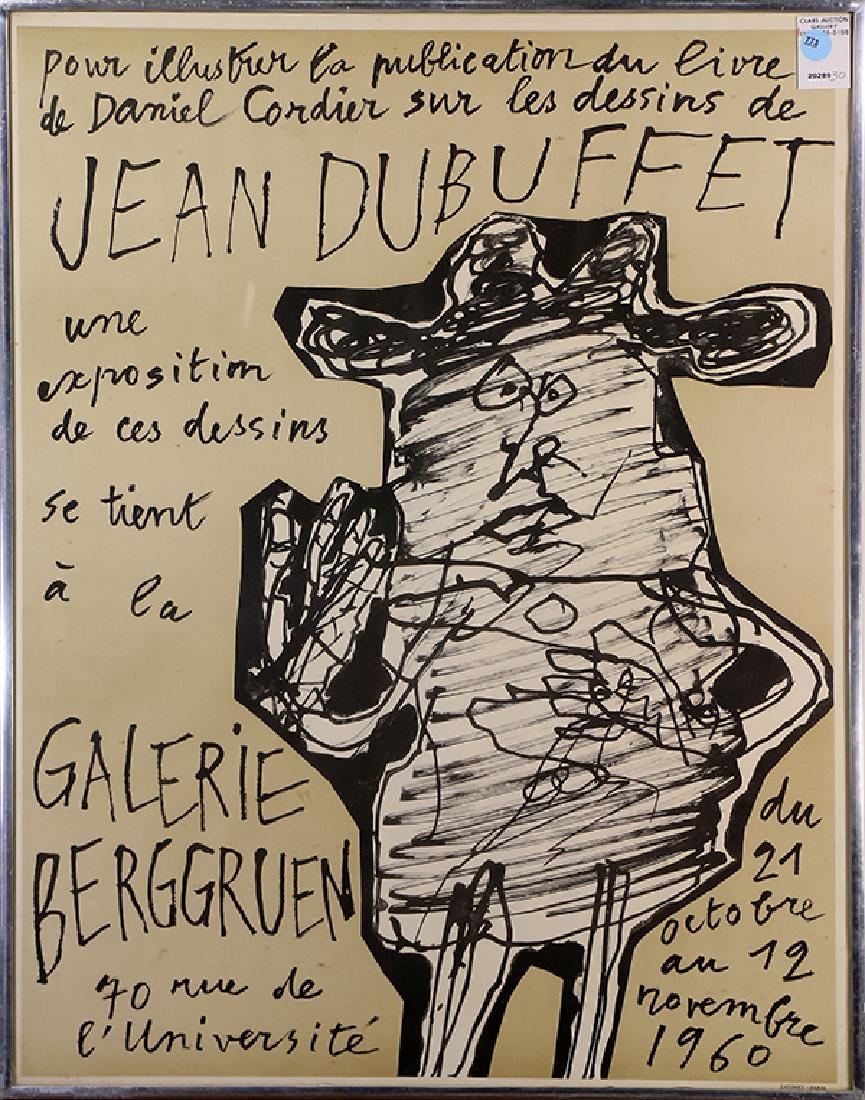 pour illustrer la publication du livre
de Daniel Cordier sur les dessins de
JEAN DUBUFFET
une
exposition
de ces dessins
se tient
à la
GALERIE
BERGGRUEN
70 rue de
l'Université
du
21
octobre
au 12
novembre
1960
CLARS AUCTION
GALLERY